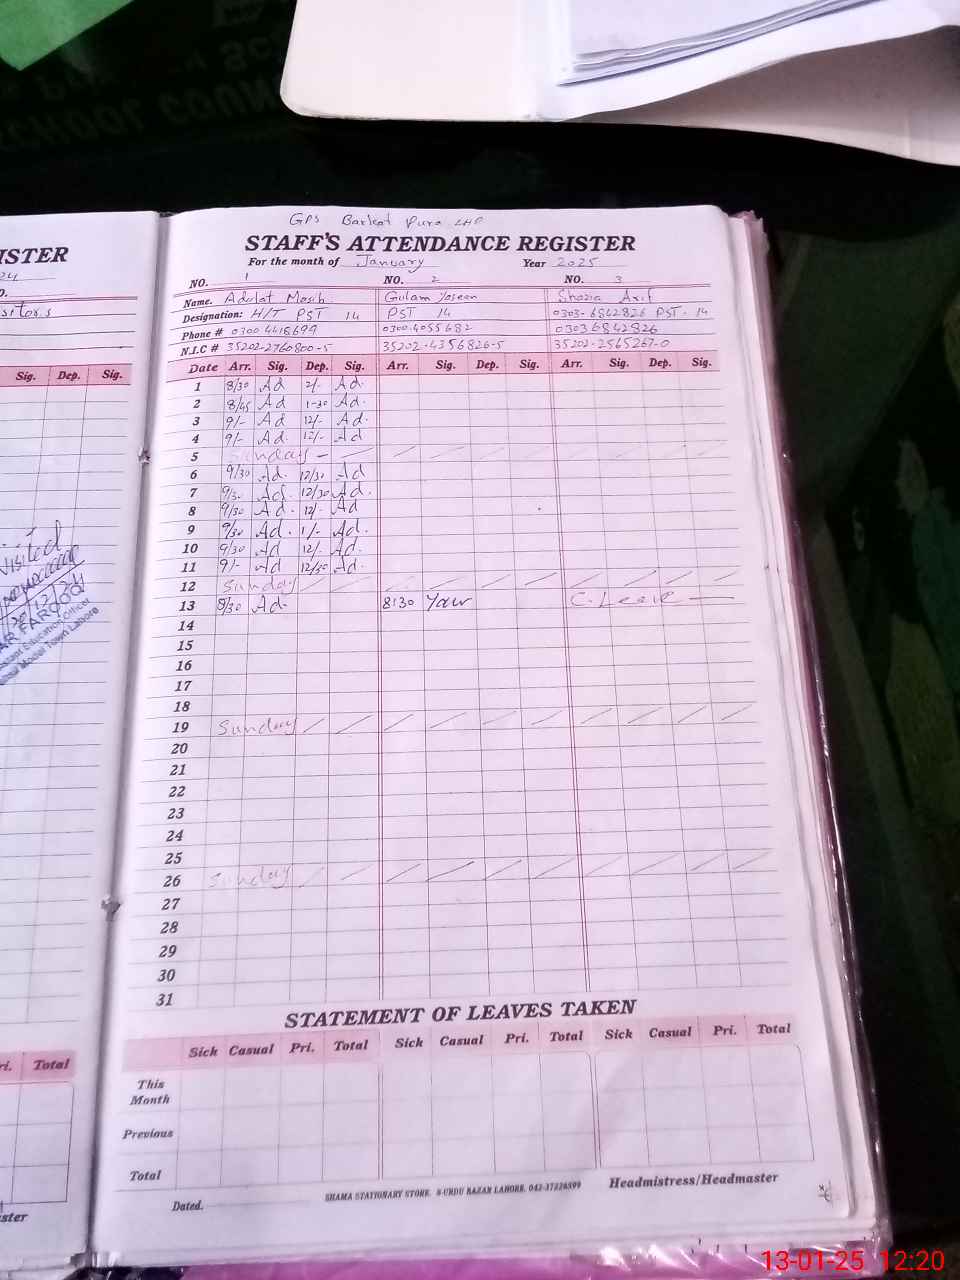 SCHOOL COUN
GPS Barkat Pura LHR
ISTER
STAFF'S ATTENDANCE REGISTER
For the month of January Year 2025
NO. 1 NO. 2 NO. 3
Name. Adalat Masih Gulam Yaseen Shazia Arif
Designation: H/T PST 14 PST 14 0303-6842826 PST. 14
Phone # 0300 4418699 0300.4055682 03036842826
N.I.C # 35202-2760800-5 35202-4356826-5 35202-2565267-0
Sig. Dep. Sig.
Date Arr. Sig. Dep. Sig. Arr. Sig. Dep. Sig. Arr. Sig. Dep. Sig.
1 8/30 Ad 2/- Ad.
2 8/45 Ad 1-30 Ad.
3 9/- Ad 12/- Ad.
4 9/- Ad. 12/- Ad
5 Sunday -
6 9/30 Ad. 12/30 Ad
7 9/30 Ad. 12/30 Ad.
8 9/30 Ad. 12/- Ad
9 9/30 Ad. 1/- Ad.
10 9/30 Ad 12/- Ad.
11 9/- Ad 12/30 Ad.
12 Sunday
13 8/30 Ad. 8:30 C. Leave
14
15
16
17
18
19 Sunday
20
21
22
23
24
25
26 Sunday
27
28
29
30
31
Visited
AR FAROOQ
Education Officer
Model Town Lahore
STATEMENT OF LEAVES TAKEN
ri. Total
Sick Casual Pri. Total Sick Casual Pri. Total Sick Casual Pri. Total
This
Month
Previous
Total
Dated.
SHAMA STATIONARY STORE. 8-URDU BAZAR LAHORE. 042-37226599
Headmistress/Headmaster
ster
13-01-25 12:20